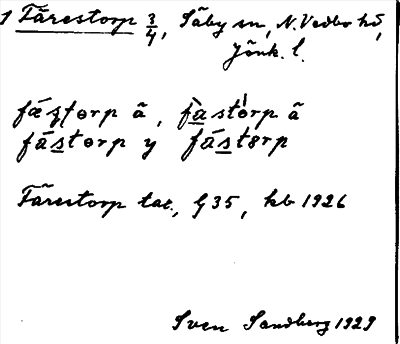 1 Fårestorp 3/4, Säby sn, N. Vedbo hd,
Jönk. l.
fástorp ã, fàstórp ã
fástorp y fástorp
Fårestorp tax., G 35, kb 1926
Sven Sandberg 1929